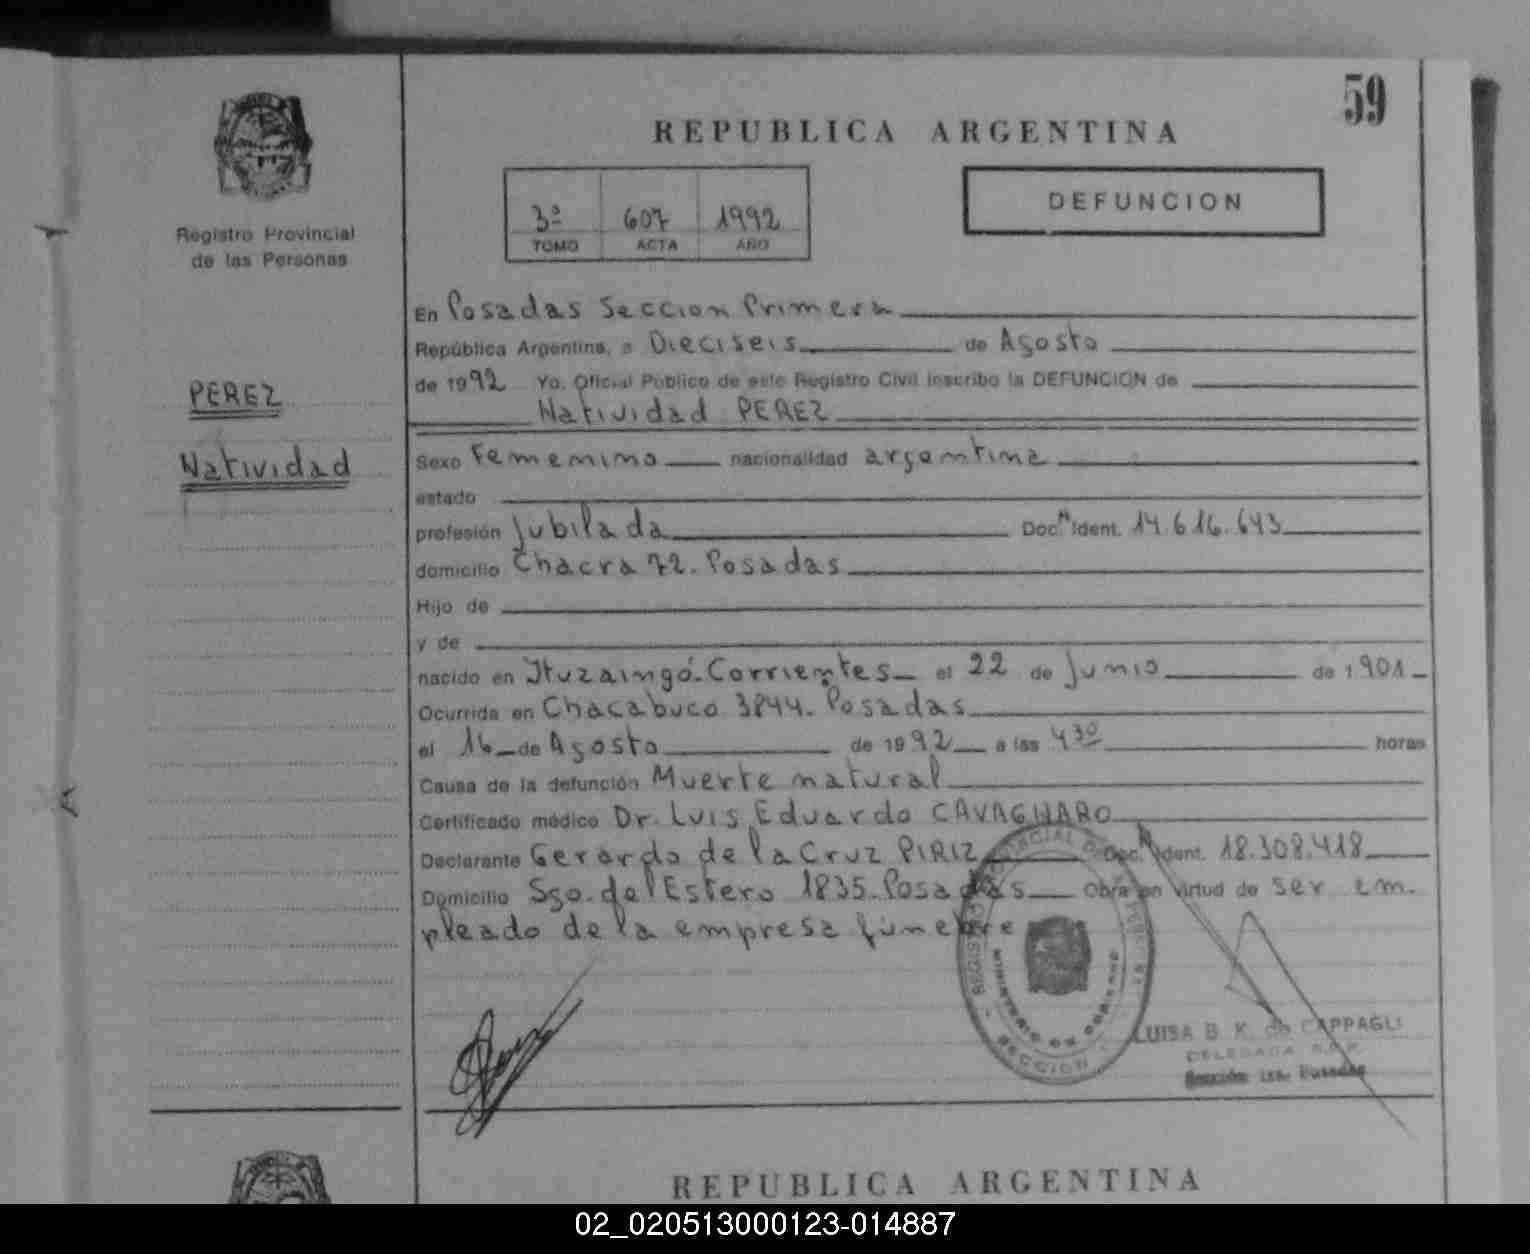 59
REPUBLICA ARGENTINA
3ª 607 1992
TOMO ACTA AÑO
DEFUNCION
Registro Provincial
de las Personas
PEREZ
Natividad
En Posadas Seccion Primera
República Argentina, a Dieciseis de Agosto
de 1992 Yo, Oficial Público de este Registro Civil inscribo la DEFUNCION de
Natividad PEREZ
Sexo Femenino nacionalidad argentina
estado
profesión Jubilada Doc. N Ident. 14.616.643
domicilio Chacra 72. Posadas
Hijo de
y de
nacido en Ituzaingó-Corrientes el 22 de Junio de 1901
Ocurrida en Chacabuco 3844. Posadas
el 16 de Agosto de 1992 a las 4 30 horas
Causa de la defunción Muerte natural
Certificado médico Dr. Luis Eduardo CAVAGNARO
Declarante Gerardo de la Cruz PIRIZ Doc. N Ident. 18.308.418
Domicilio Sgo. del Estero 1835. Posadas Obra en virtud de ser em-
pleado de la empresa fúnebre
MINISTERIO DE GOBIERNO
SECCION
LUISA B. K. de CAPPAGLI
DELEGADA
Sección 1ra. Posadas
REPUBLICA ARGENTINA
02_020513000123-014887